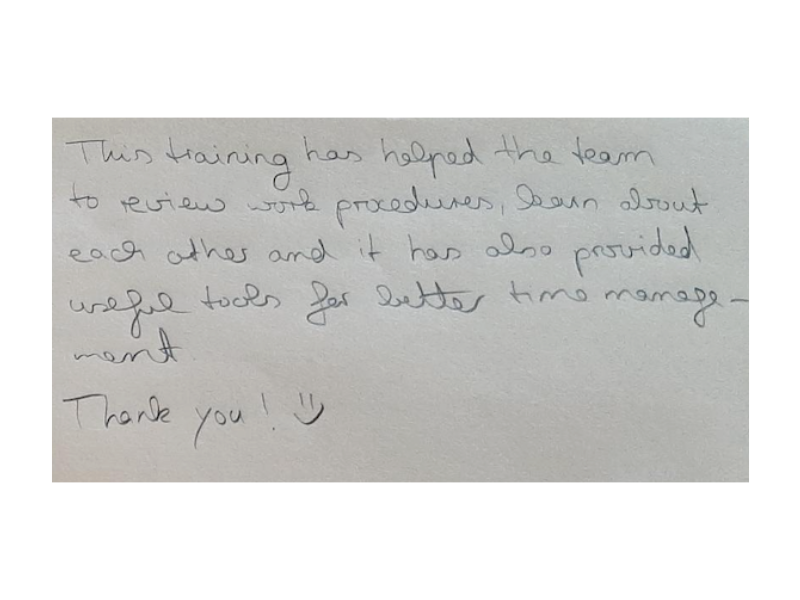 This training has helped the team
to review work procedures, learn about
each other and it has also provided
useful tools for better time manage-
ment.
Thank you! :)